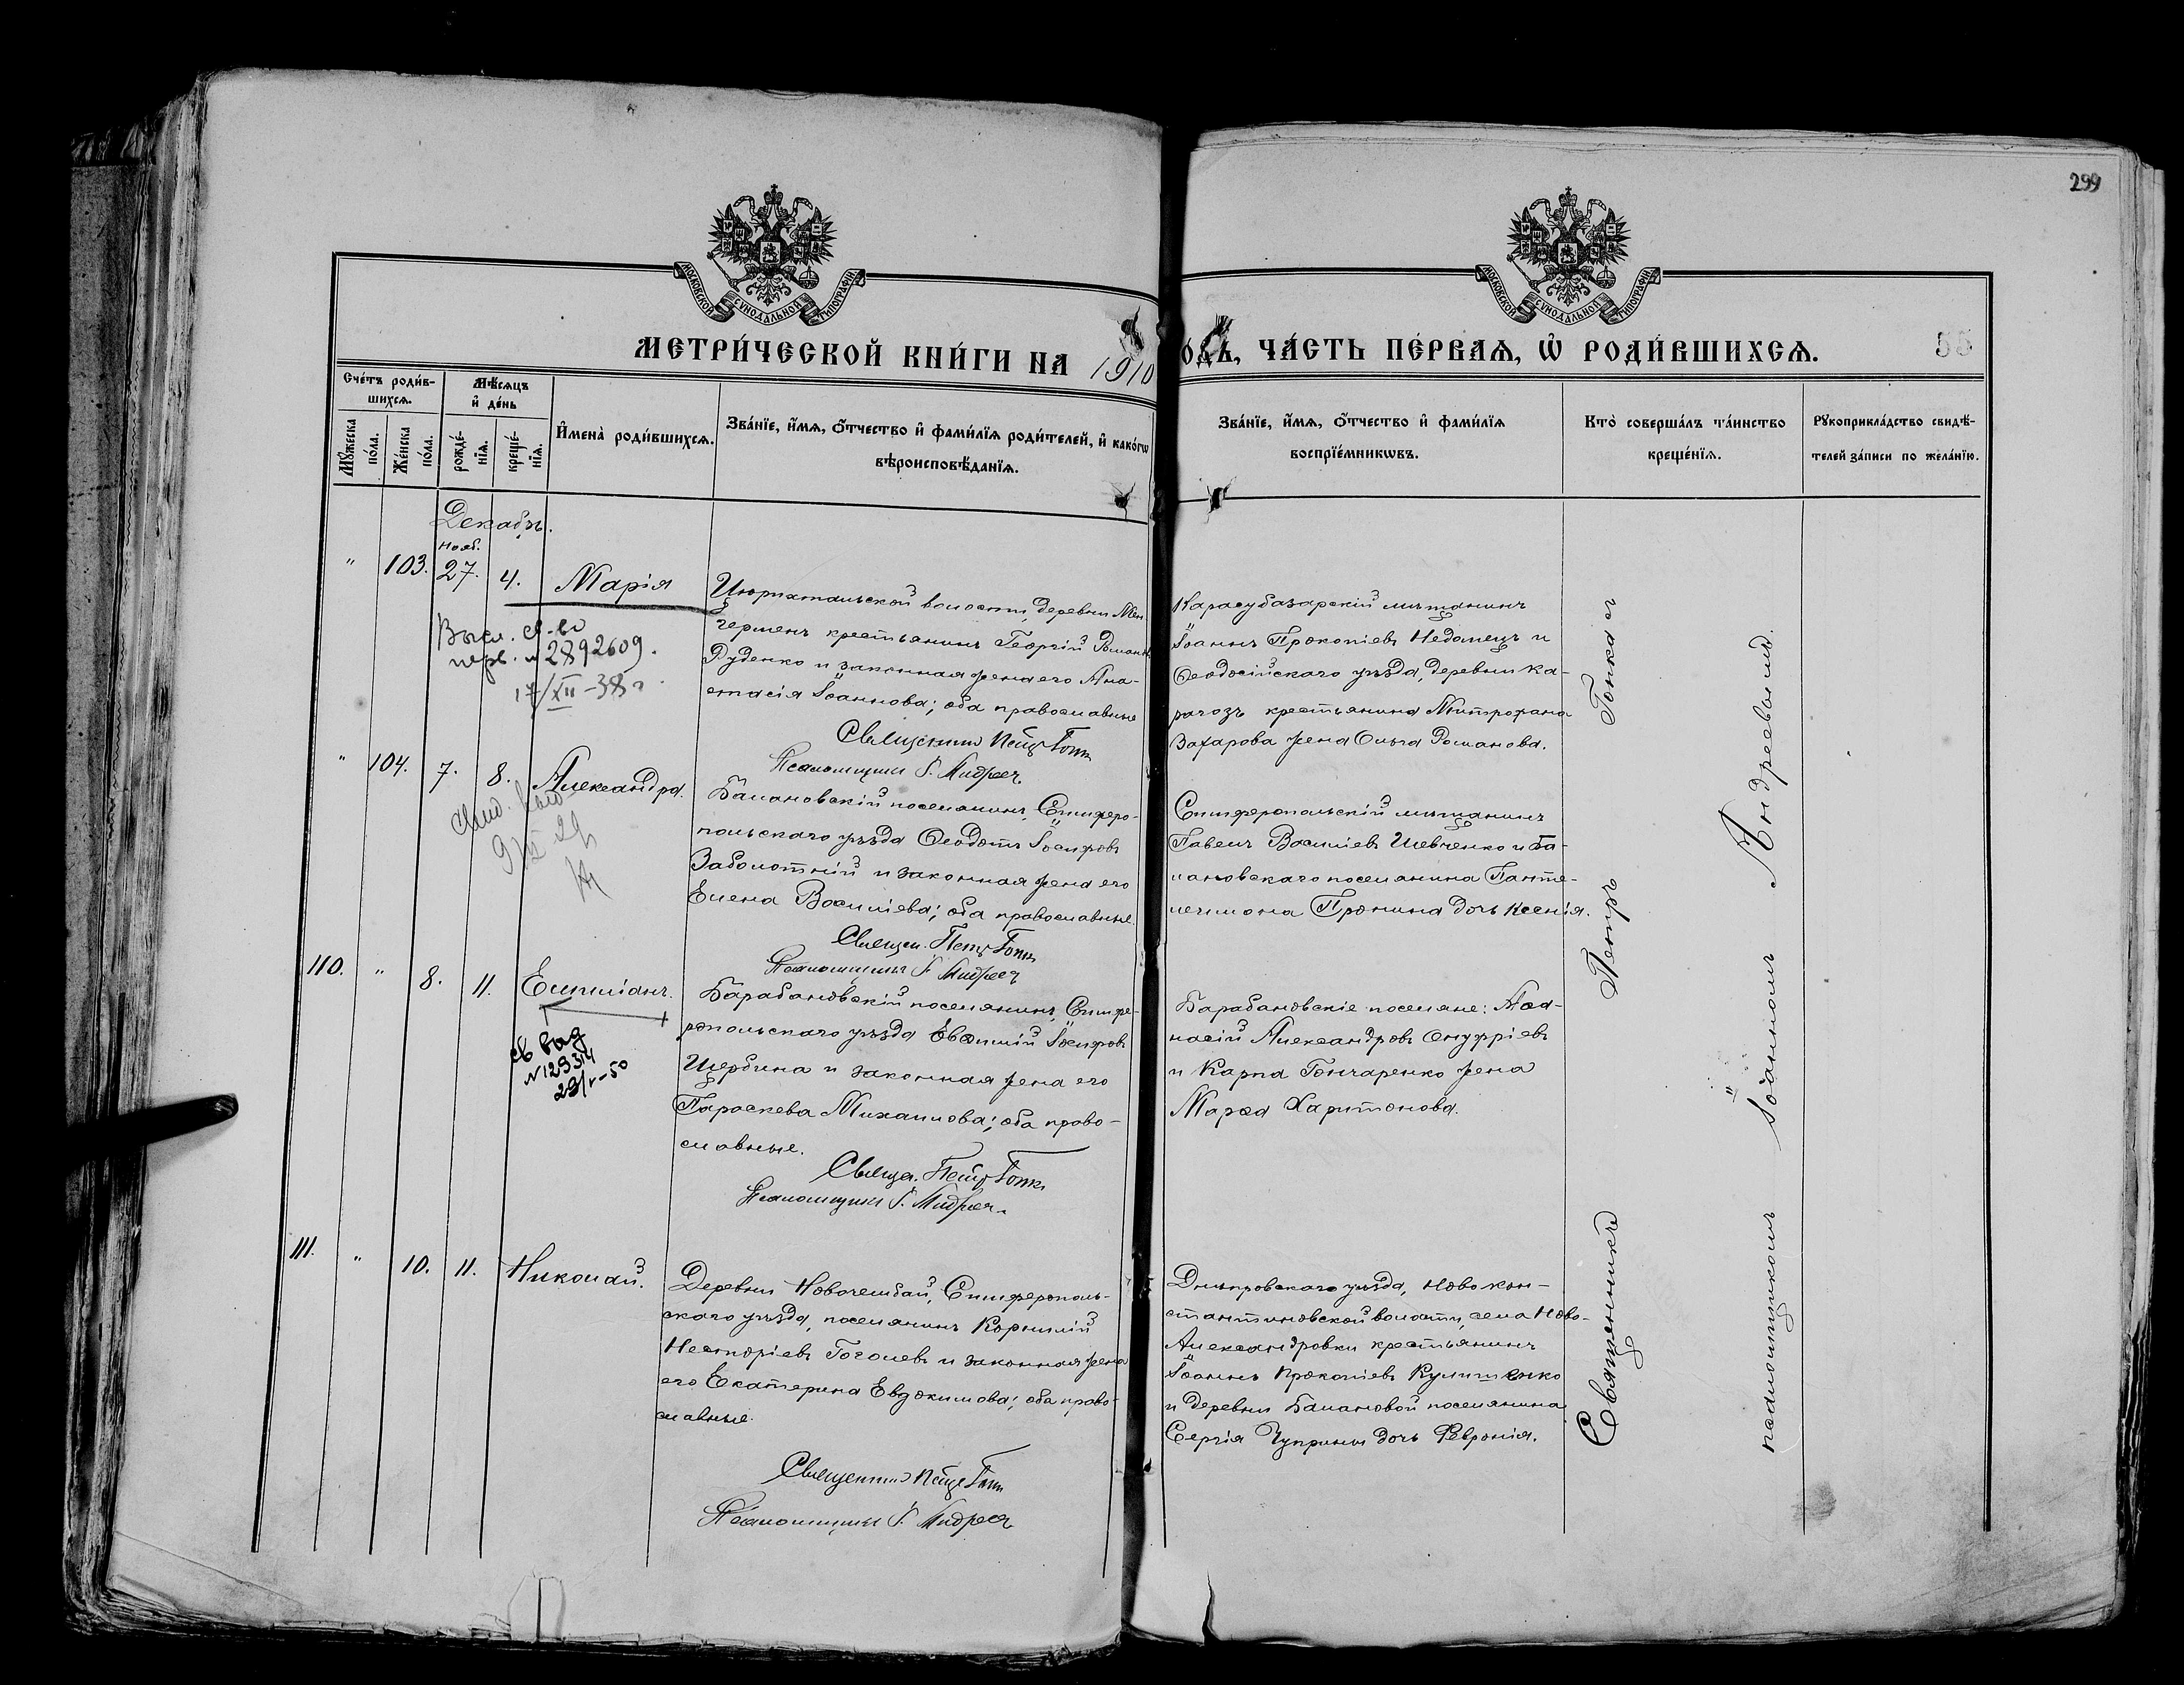 299
55
МОСКОВСКОЙ СѴНОДАЛЬНОЙ ТИПОГРАФІИ
МОСКОВСКОЙ СѴНОДАЛЬНОЙ ТИПОГРАФІИ
МЕТРИ́ЧЕСКОЙ КНИ́ГИ НА 1910
ОДЪ, ЧА́СТЬ ПЕ́РВАѦ, Ѡ҆ РОДИ́ВШИХСѦ.
Сче́тъ роди́в-
шихсѧ.
Мꙋ́жеска по́ла.
Же́нска по́ла.
Мѣ́сѧцъ
и҆ де́нь
рожде́-
нїѧ.
креще́-
нїѧ.
И҆мена̀ роди́вшихсѧ.
Зва́нїе, и҆́мѧ, ѻ҆́тчество и҆ фами́лїѧ роди́телей, и҆ како́гѡ
вѣроисповѣ́данїѧ.
Зва́нїе, и҆́мѧ, ѻ҆́тчество и҆ фами́лїѧ
воспрїе́мникѡвъ.
Кто̀ соверша́лъ та́инство
креще́нїѧ.
Рꙋкоприкла́дство свидѣ́-
телей за́писи по жела́нїю.
Декабрь.
Нояб.
" 103. 27. 4. Марія
волости, деревни Мен-
герменъ крестьянинъ Георгій Романовъ
Руденко и законная жена его Ана-
стасія Іоаннова; оба православные
Священникъ Петръ
Псаломщикъ І. Андреев
Карасубазарскій мѣщанинъ
Іоаннъ Прокопіевъ Недомецъ и
Ѳеодосійскаго уѣзда, деревни Ка-
рагозъ крестьянина Митрофана
Захарова жена Ольга Романова.
2892609.
17/XII-38 г.
" 104. 7. 8. Александра.
Балановскій поселянинъ, Симферо-
польскаго уѣзда Ѳеодотъ Іосифовъ
Заболотній и законная жена его
Елена Василіева; оба православные
Священ. Петръ
Псаломщикъ І. Андреев
Симферопольскій мѣщанинъ
Павелъ Василіевъ Шевченко и Ба-
лановскаго поселянина Панте-
леимона Пронина дочь Ксенія.
110. " 8. 11. Емиліанъ.
Барабановскій поселянинъ, Симфе-
ропольскаго уѣзда Евѳимій Іосифовъ
Щербина и законная жена его
Параскева Михаилова; оба право-
славные.
Свящ. Петръ
Псаломщикъ І. Андреев
Барабановскіе поселяне: Аѳа-
насій Александровъ Онуфріевъ
и Карпа Гончаренко жена
Марѳа Харитонова.
св выд
N 12934
29/V-50
111. " 10. 11. Николай.
Деревни Новочембай, Симферополь-
скаго уѣзда, поселянинъ Корнилій
Несторіевъ Гоголевъ и законная жена
его Екатерина Евдокимова; оба право-
славные.
Священникъ Петръ
Псаломщикъ І. Андреев
Днѣпровскаго уѣзда, Новокон-
стантиновской волости, села Ново-
Александровки крестьянинъ
Іоаннъ Прокопіевъ Кулишенко
и деревни Балановой поселянина
Сергія Чуприны дочь Февронія.
Священникъ Петръ
псаломщикомъ Іоанномъ Андреевымъ.